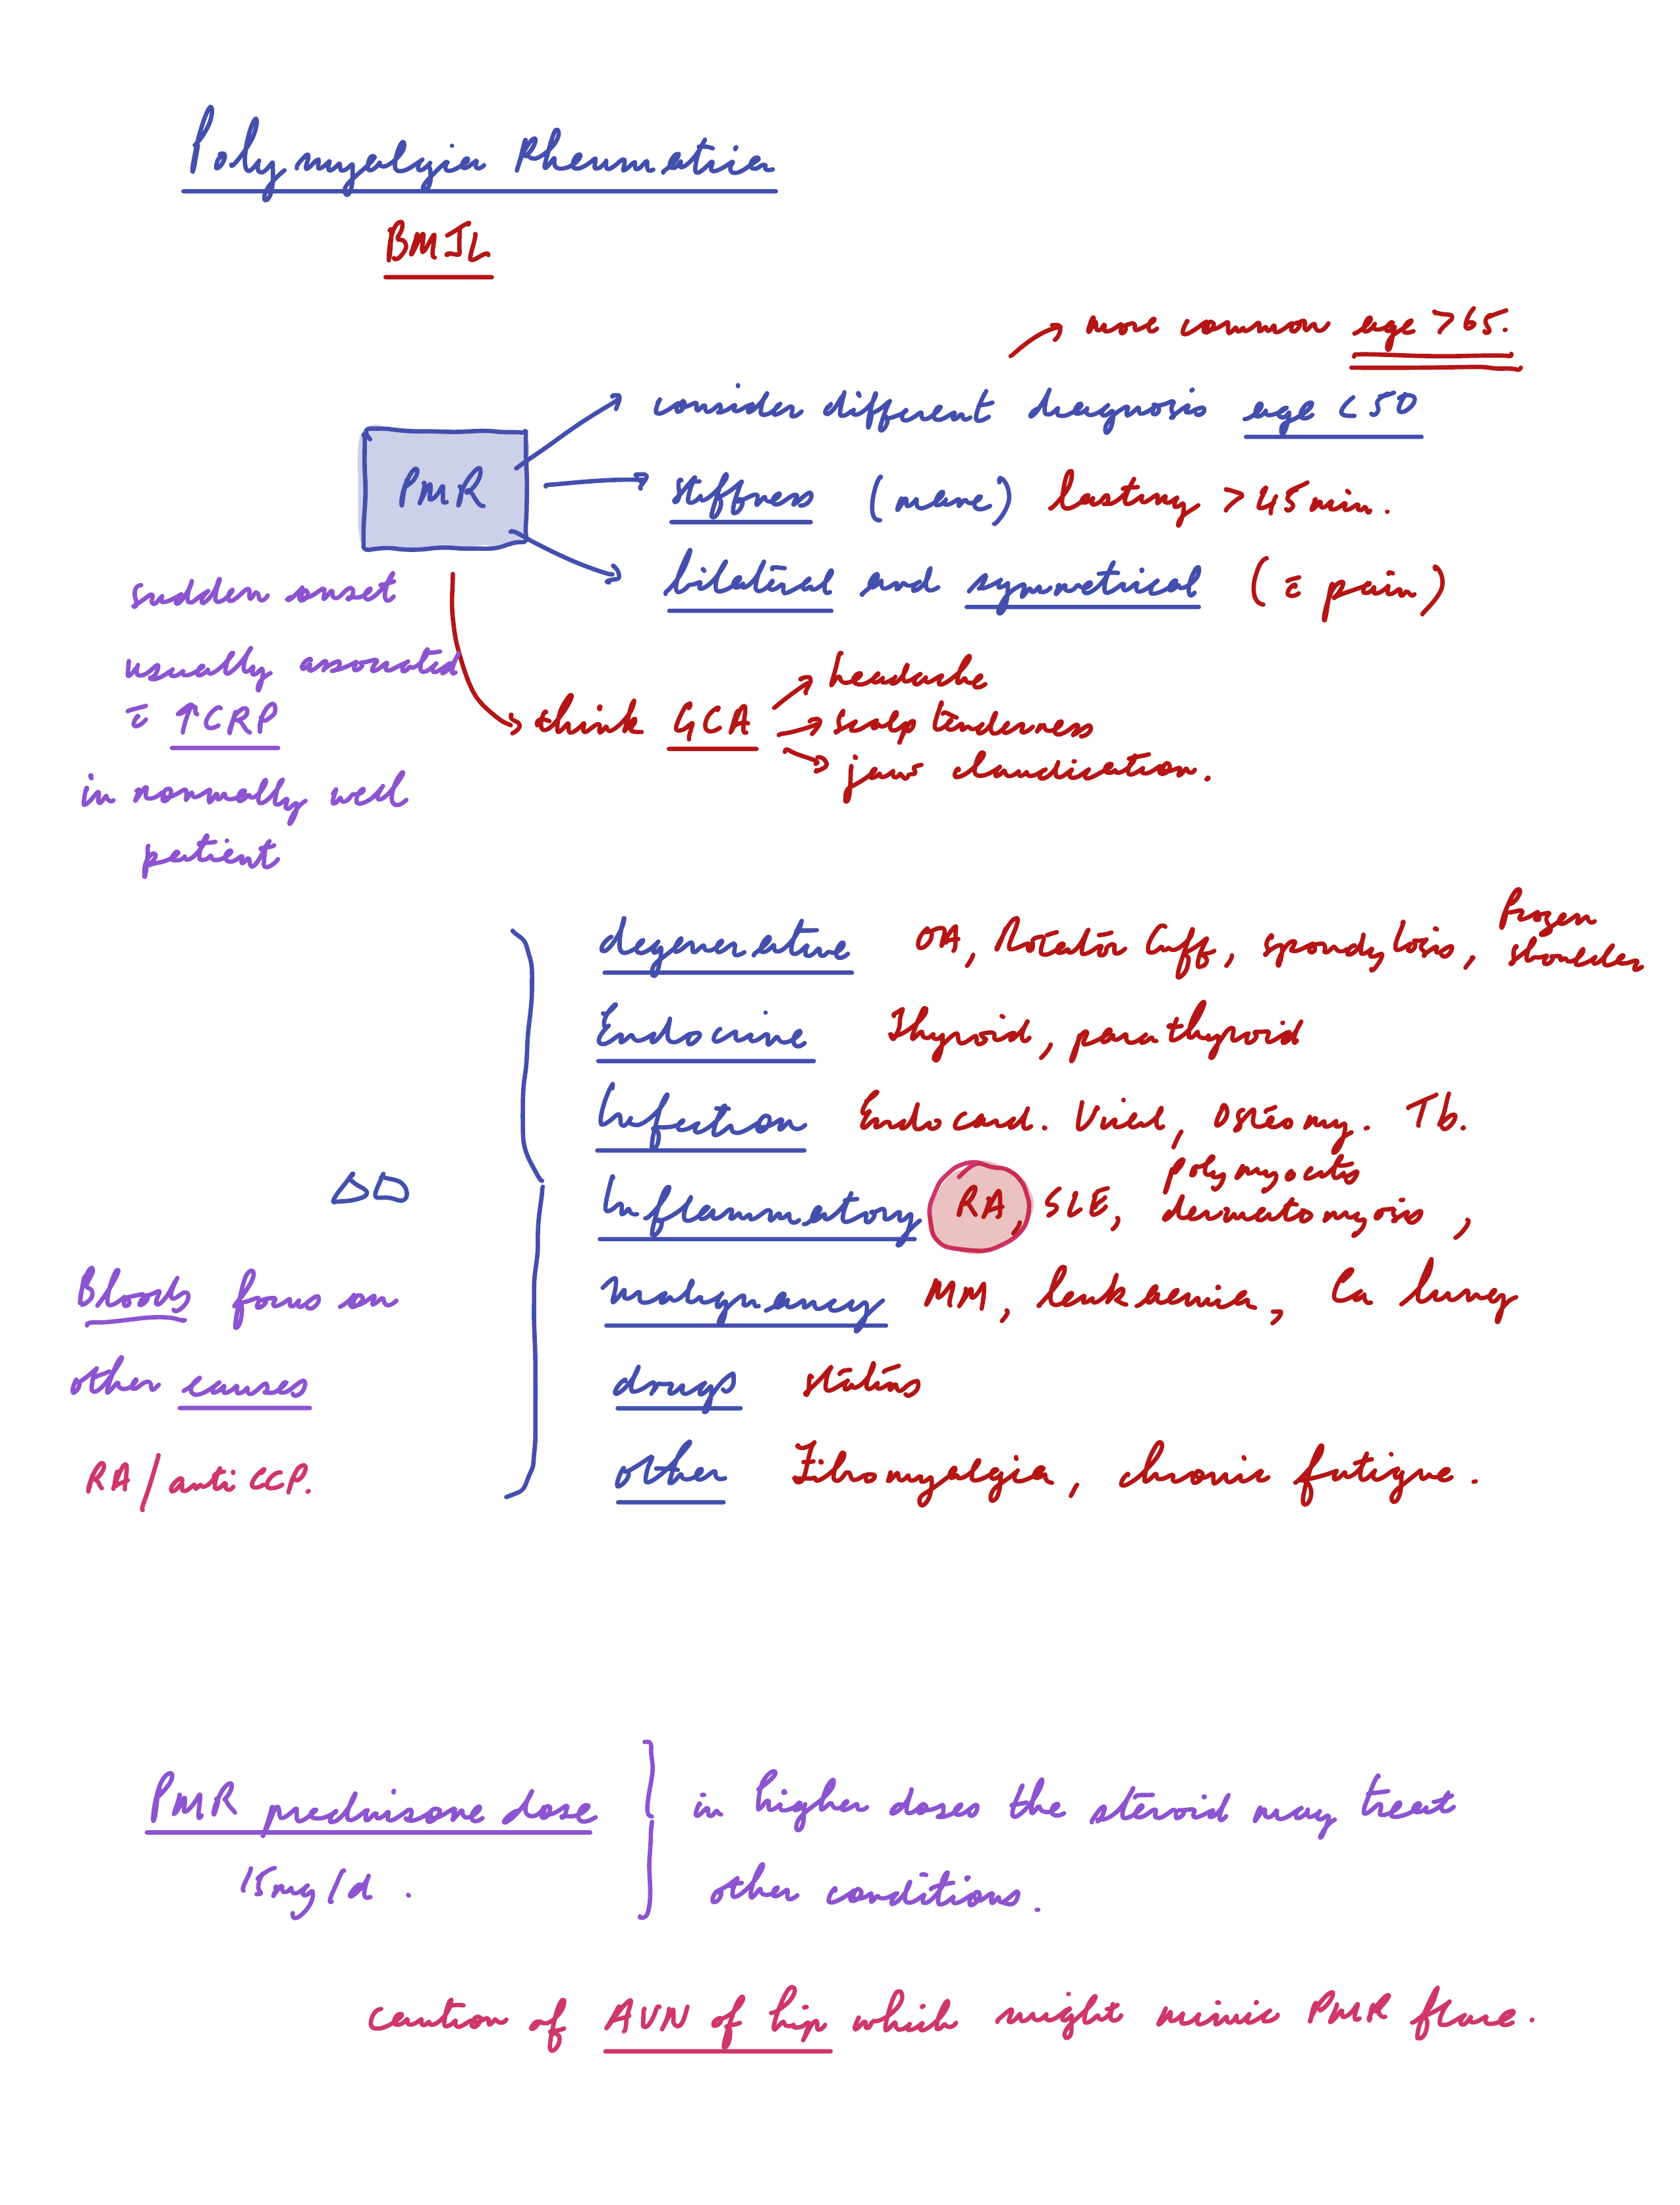 Polymyalgia Rheumatica
BMJL
more common age >65.
consider different diagnosis age <50
PMR
stiffness (mane) lasting >45 min.
bilateral and symmetrical (c̄ pain)
sudden onset
usually associated
c̄ ↑CRP
in normally well
patient
think GCA
headache
scalp tenderness
jaw claudication.
degenerative OA, Rotator Cuff, spondylosis, frozen shoulder
Endocrine Thyroid, parathyroid
Infection Endocard. Viral, Osteomy. Tb.
Inflammatory RA, SLE, polymyocitis dermatomyosis,
DD
malignancy MM, leukaemia, Ca lung
drugs statins
other Fibromyalgia, chronic fatigue.
Bloods focus on
other causes
RA/anti CCP.
PMR prednisone dose
15mg/d.
in higher doses the steroid may treat
other conditions.
caution of AVN of hip which might mimic PMR flare.